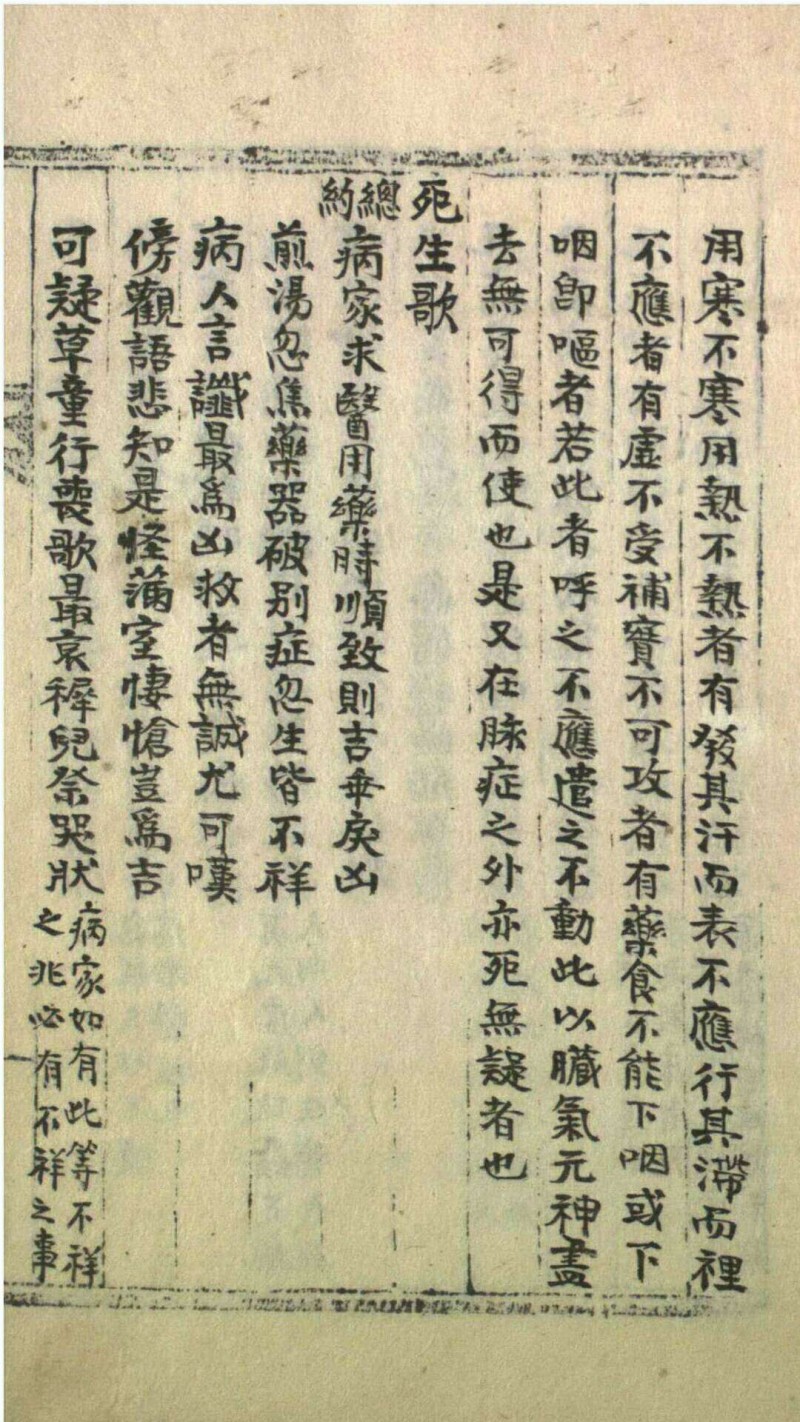 用寒不寒用熱不熱者有發其汗而表不應行其滯而裡
不應者有虛不受補實不可攻者有藥食不能下咽或下
咽卽嘔者若此者呼之不應遣之不動此以臟氣元神盡
去無可得而使也是又在脉症之外亦死無疑者也
死生歌
總約
病家求醫用藥時順致則吉乖戾凶
煎湯忽焦藥器破別症忽生皆不祥
病人言讖最爲凶救者無誠尤可嘆
傍觀語悲知是怪滿室悽愴豈爲吉
可疑草童行喪歌最哀穉兒祭哭狀
病家如有此等不祥
之兆必有不祥之事